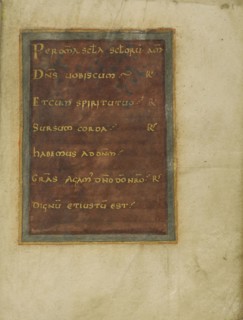 Per omia scła sclorū am
Dn̄s uobiscum R
Et cum spiritu tuo R
Sursum corda R
habemus ad dnm̄
Gras agam' dn̄o dō nr̄o R
dignū et iustū est